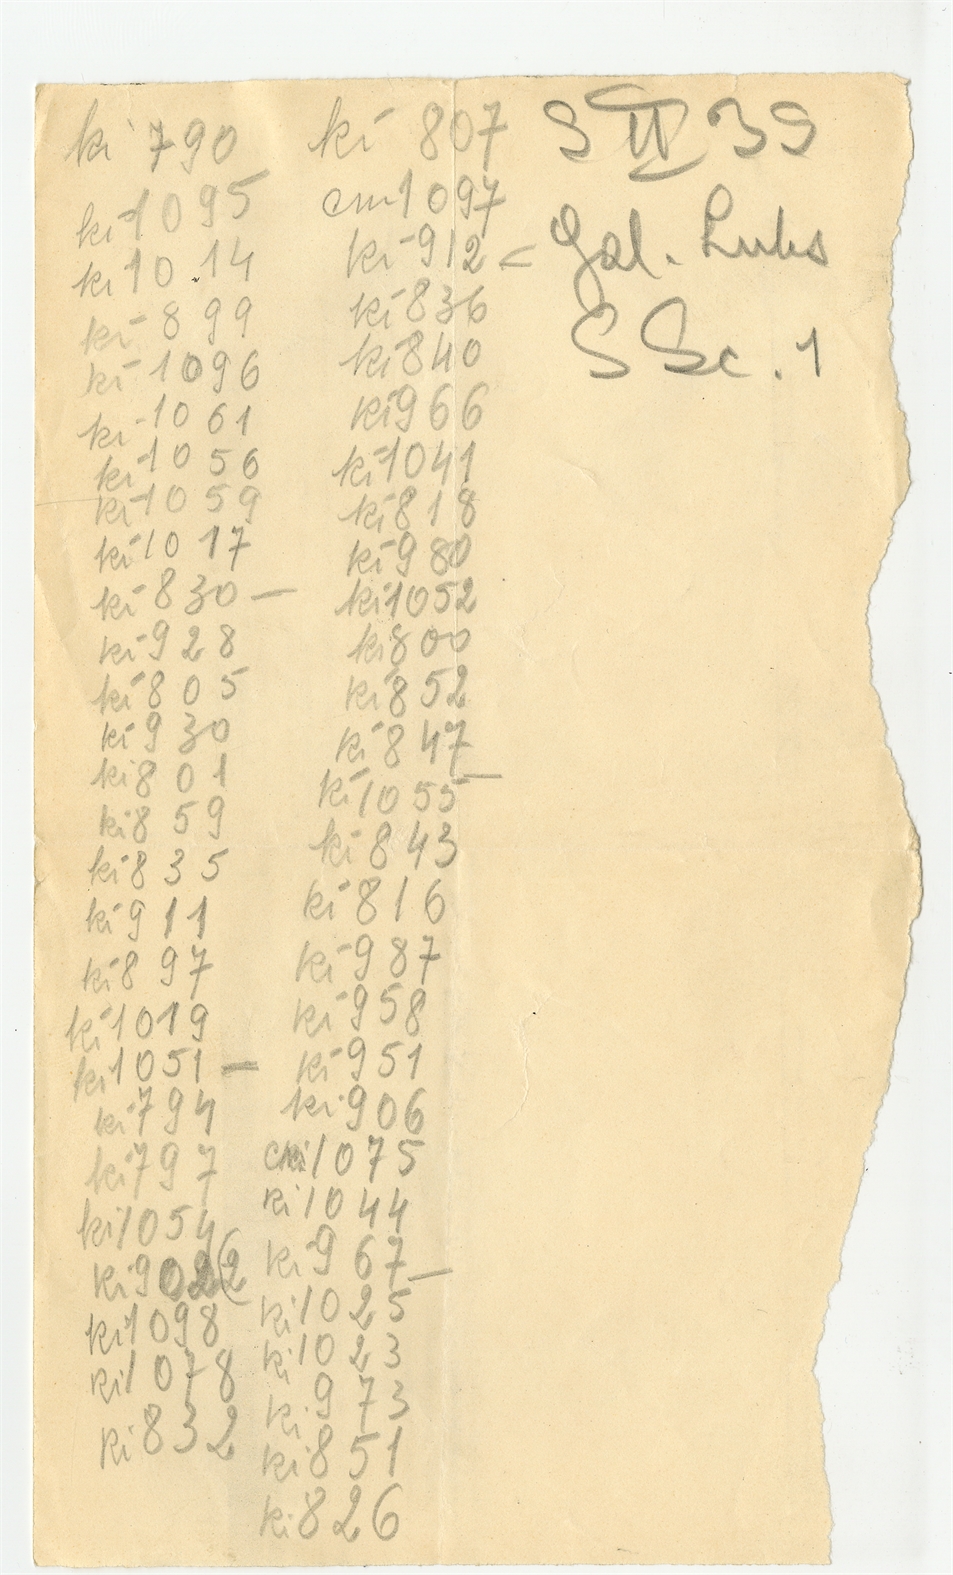 ki 790
ki 1095
ki 1014
ki 899
ki 1096
ki 1061
ki 1056
ki 1059
ki 1017
ki 830 —
ki 928
ki 805
ki 930
ki 801
ki 859
ki 835
ki 911
ki 897
ki 1019
ki 1051 —
ki 794
ki 797
ki 1054
ki 902
ki 1098
ki 1078
ki 832
ki 807
cm 1097
ki 912
ki 836
ki 840
ki 966
ki 1041
ki 818
ki 980
ki 1052
ki 800
ki 852
ki 847
ki 1055
ki 843
ki 816
ki 987
ki 958
ki 951
ki 906
1075
ki 1044
ki 967 —
ki 1025
ki 1023
ki 973
ki 851
ki 826
9 II 39
Gal. Luks